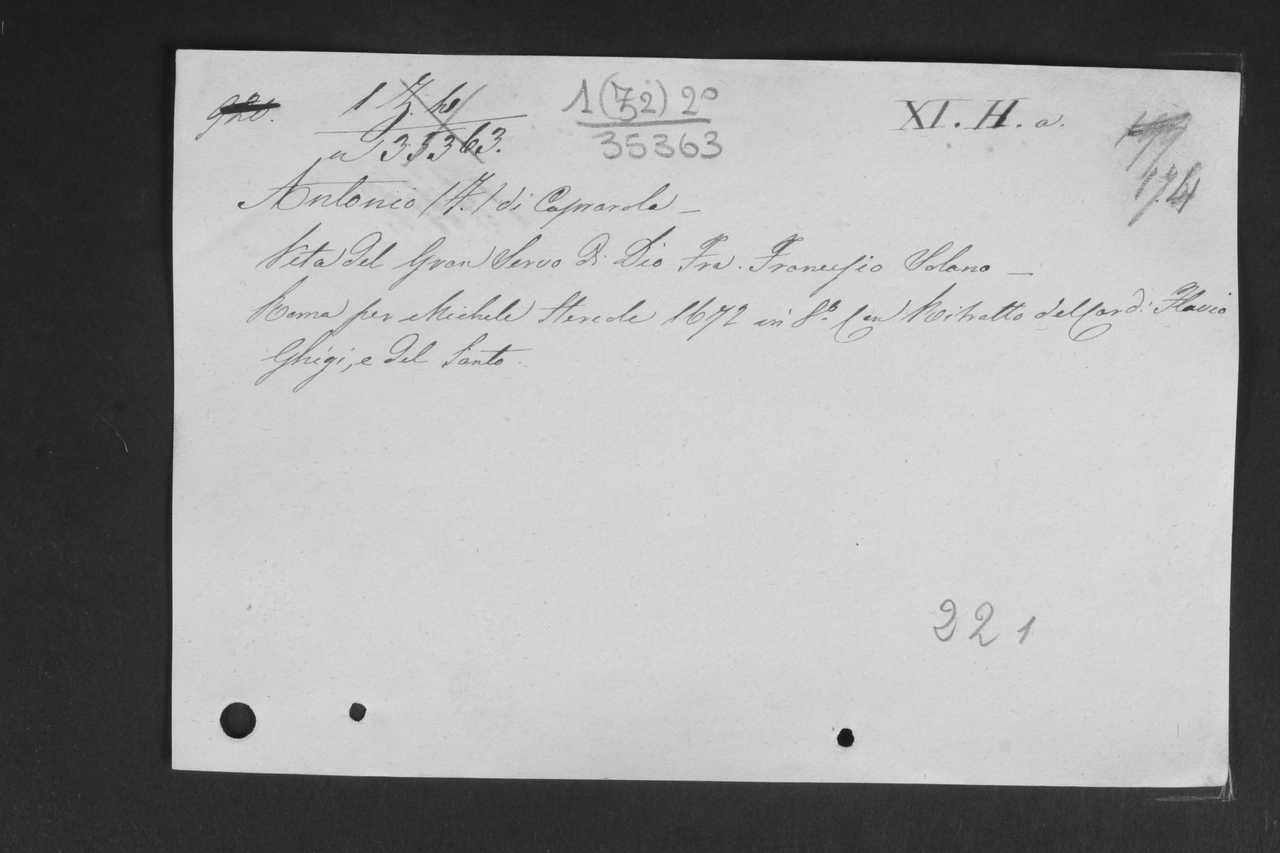 920.
1 Z. 4
a 35363.
1 (Z2) 2º
35363
XI. H. a.
Antonio (F.) di Caprarola –
Vita del Gran Servo di Dio Fra. Francesco Solano –
Roma per Michele Hercole 1672 in 8º. Con Ritratto del Card: Flavio
Ghigi, e del Santo.
221